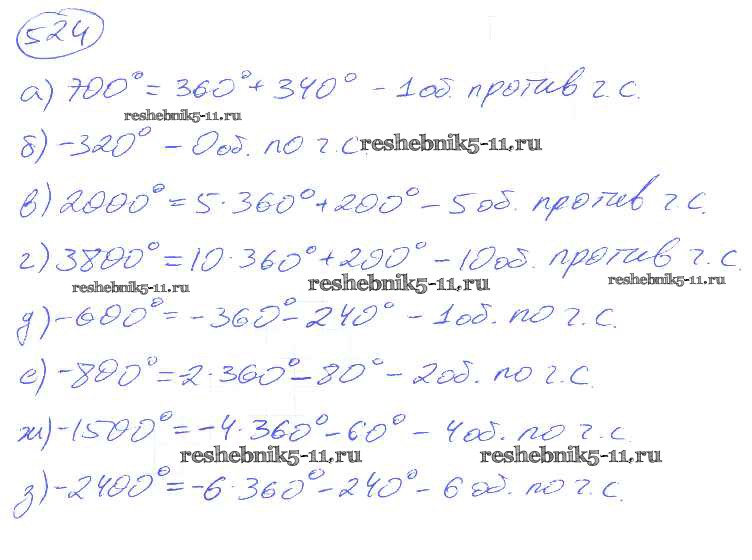 524
а) 700° = 360° + 340° - 1 об. против г.с.
reshebnik5-11.ru
б) -320° - 0 об. по г.с. reshebnik5-11.ru
в) 2000° = 5·360° + 200° - 5 об. против г.с.
г) 3800° = 10·360° + 200° - 10 об. против г.с.
reshebnik5-11.ru reshebnik5-11.ru reshebnik5-11.ru
д) -600° = -360° - 240° - 1 об. по г.с.
е) -800° = -2·360° - 80° - 2 об. по г.с.
ж) -1500° = -4·360° - 60° - 4 об. по г.с.
reshebnik5-11.ru reshebnik5-11.ru
з) -2400° = -6·360° - 240° - 6 об. по г.с.